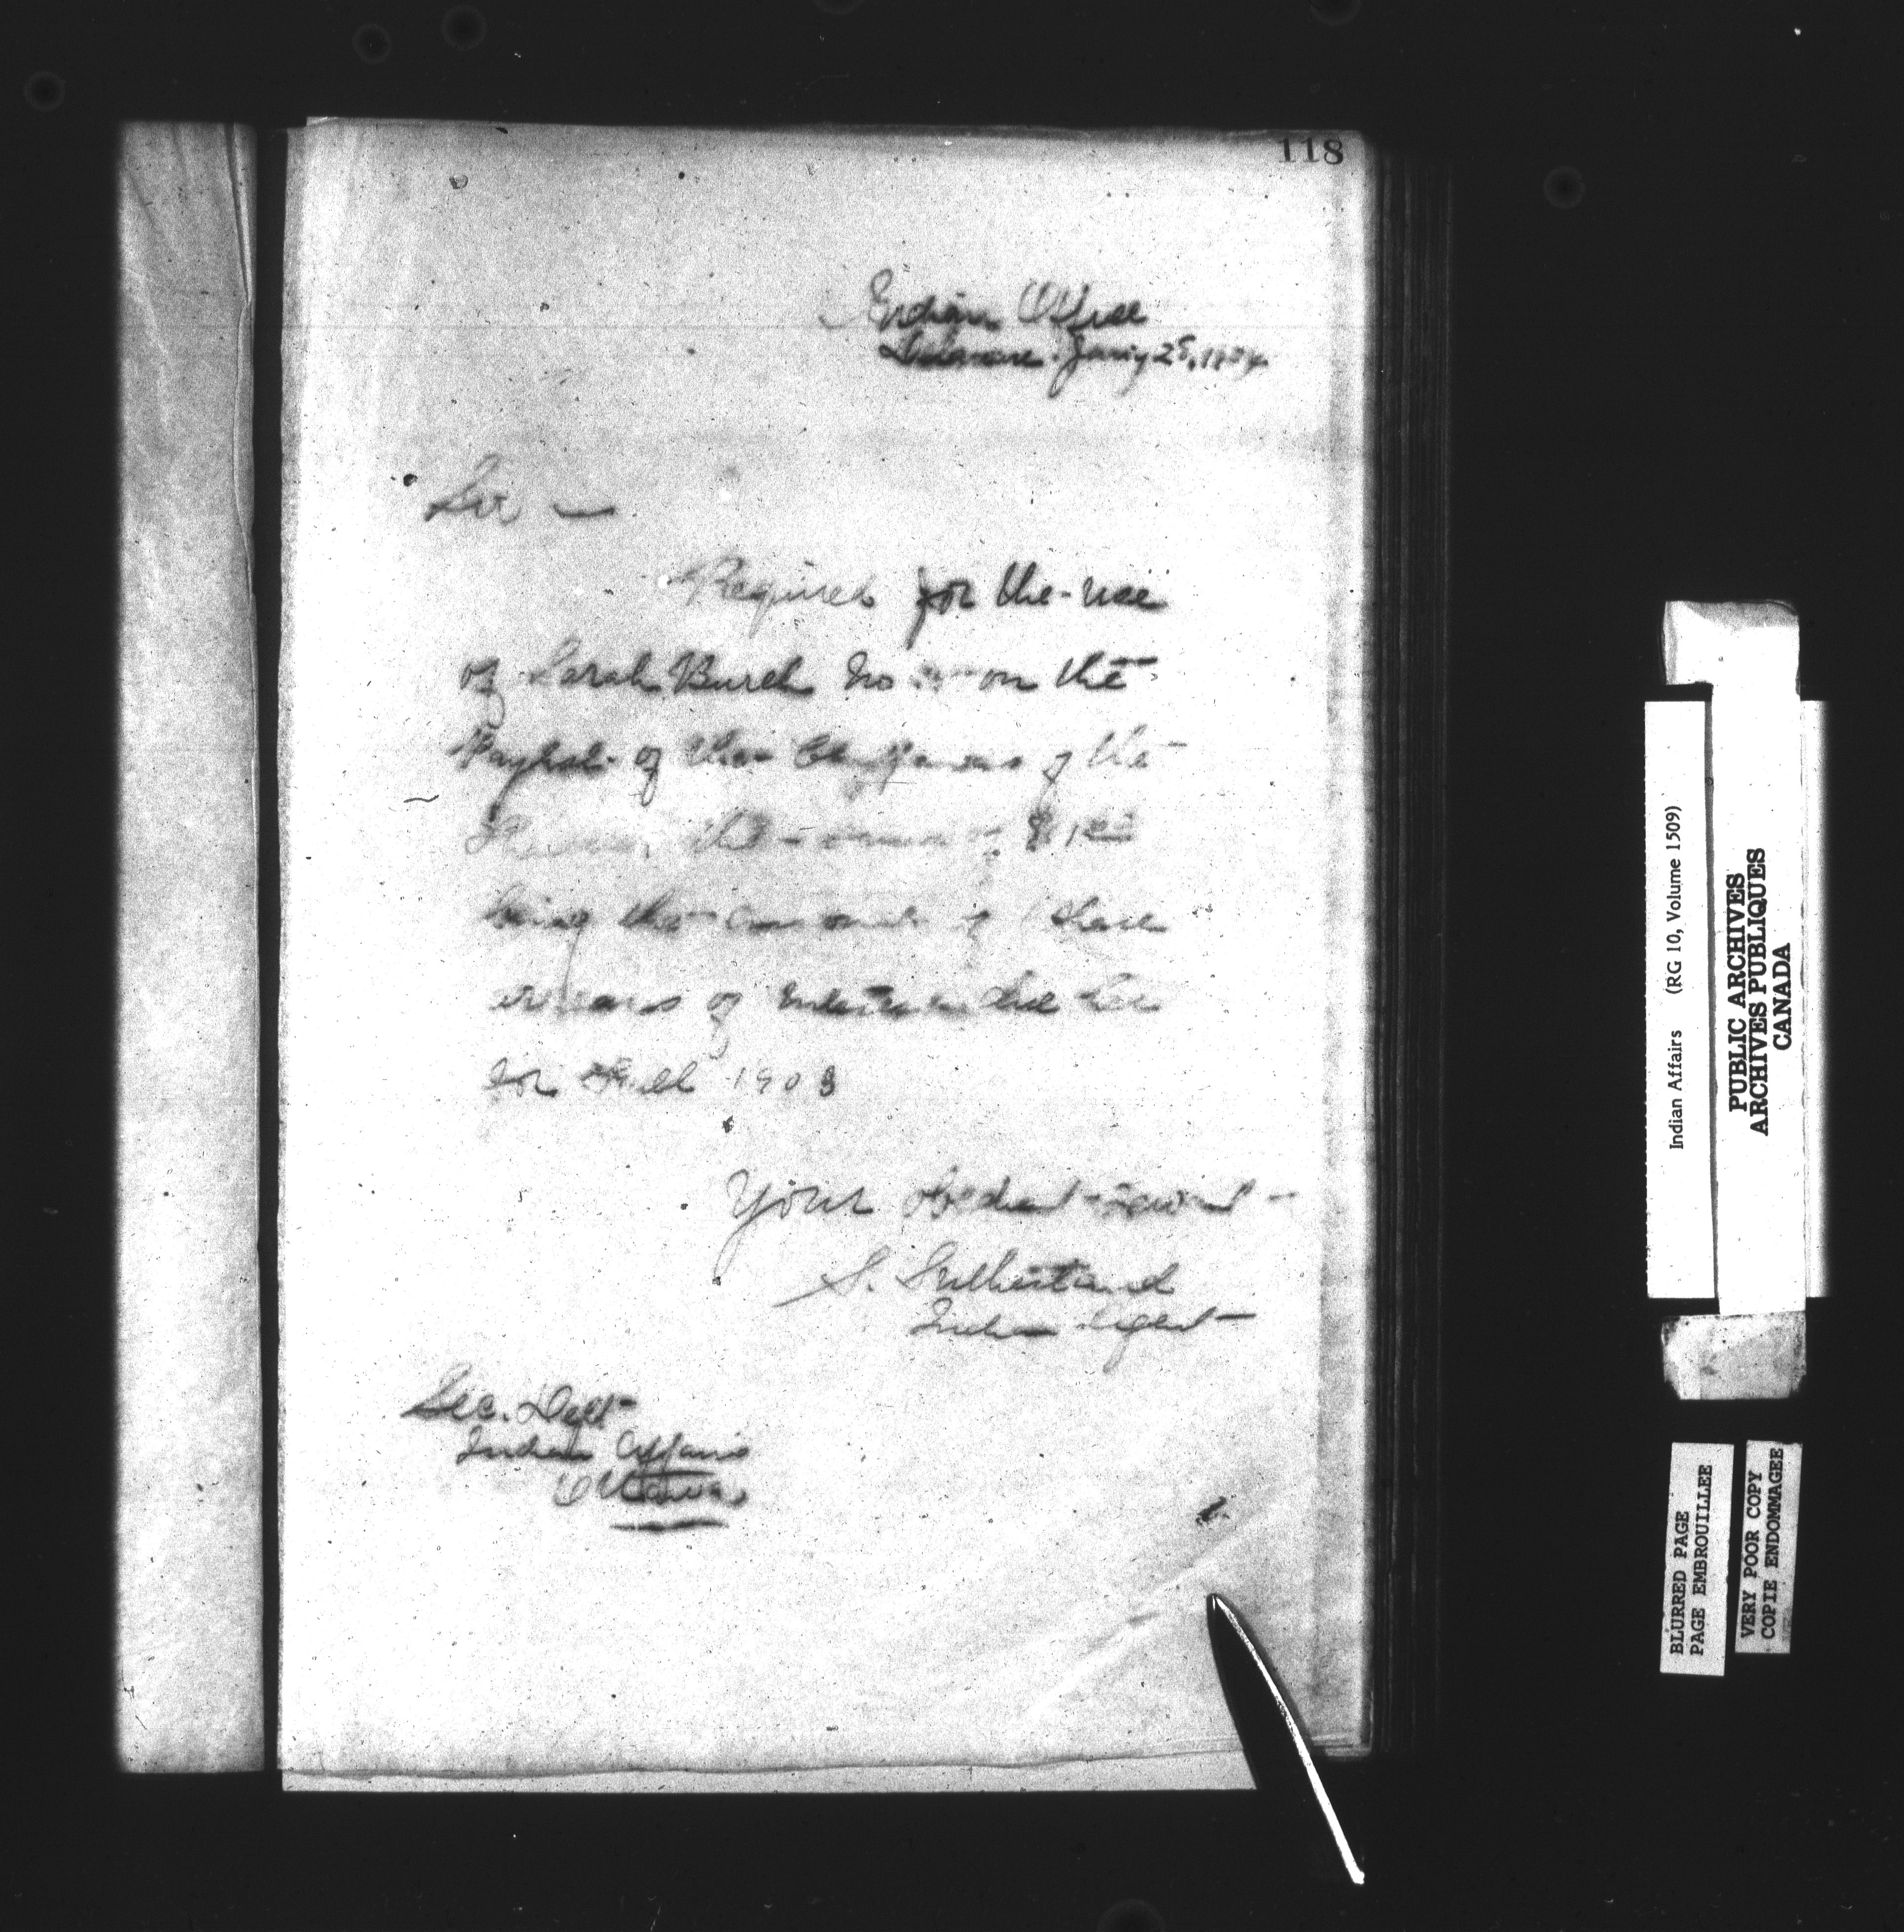 118
Indian Office
Delaware. Jany 25, 1904
Sir —
Required for the use
of Sarah Burch No on the
Payroll of the Chippewas of the
Thames, the sum of $1.00
being the amount of 1 share
arrears of interest due her
for Fall 1903
Your Obedient Servant
S. Sutherland
Indian Agent
Sec. Dept
Indian Affairs
Ottawa
Indian Affairs (RG 10, Volume 1509)
PUBLIC ARCHIVES
ARCHIVES PUBLIQUES
CANADA
BLURRED PAGE
PAGE EMBROUILLEE
VERY POOR COPY
COPIE ENDOMMAGEE